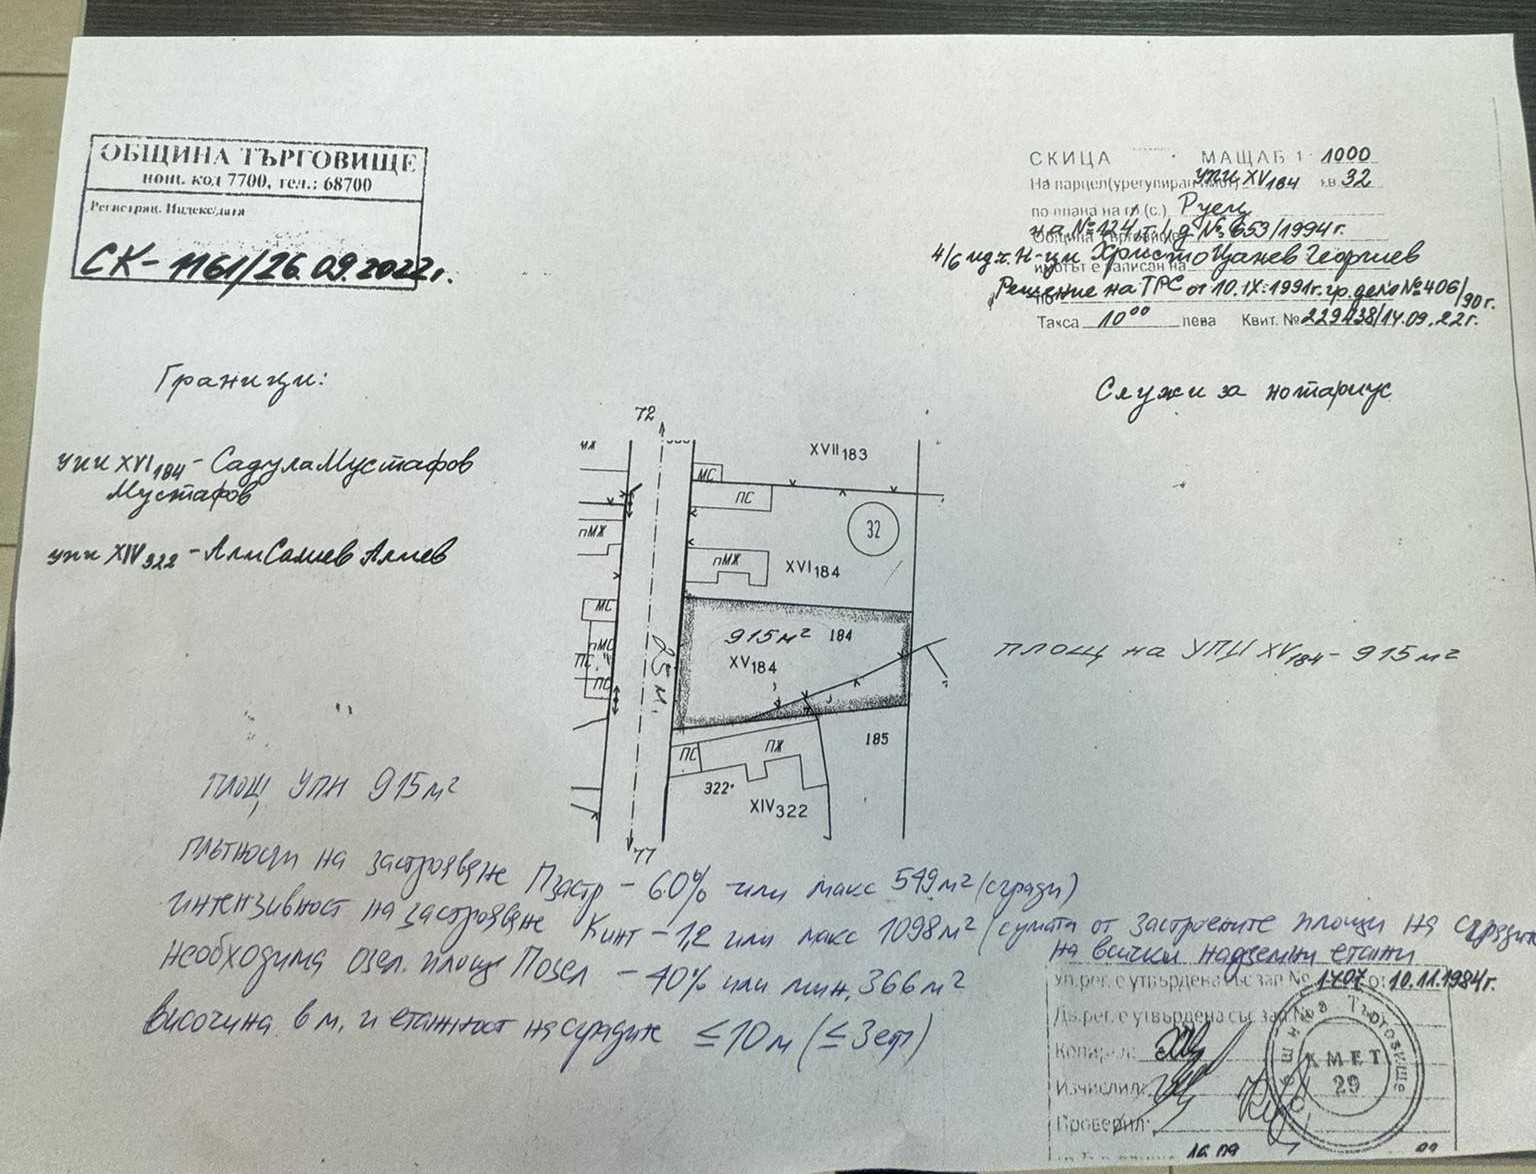 ОБЩИНА ТЪРГОВИЩЕ
пощ. код 7700, тел.: 68700
Регистрац. Индекс/дата
СК- 1161/26.09.2022г.
СКИЦА МАЩАБ 1: 1000
На парцел(урегулиран имот) УПИ XV184 кв 32
по плана на гр.(с.) Руец
на №124, т. I, д №653/1994г.
4/6 ид.ч. Н-ци Христо Цанев Георгиев
имотът е записан на
Решение на ТРС от 10.IX.1991г. гр. дело №406/90г.
Такса 10⁰⁰ лева Квит. № 229438/14.09.22г.
Граници:
Служи за нотариус
упи XVI184 - Садула Мустафов
Мустафов
упи XIV322 - Али Салиев Алиев
72
МЖ
XVII183
МС
ПС
32
пМЖ
пМЖ
XVI184
МС
915м² 184
пМС
XV184
ПС
ПС
площ на УПИ XV184 - 915м²
185
ПС
ПЖ
322
XIV322
77
площ УПИ 915м²
плътност на застрояване Пзастр - 60% или макс 549м² (сгради)
интензивност на застрояване Кинт - 1,2 или макс 1098м² (сумата от застроените площи на сградите
на всички надземни етажи
необходима озел. площ Позел - 40% или мин. 366м²
височина в м. и етажност на сградите ≤10м (≤3ет)
Ул.рег. е утвърдена със зап № 1707 от 10.11.1984г.
Дв.рег. е утвърдена със зап №
Копирал:
Изчислил:
Проверил:
Община Търговище
КМЕТ
29
16.09